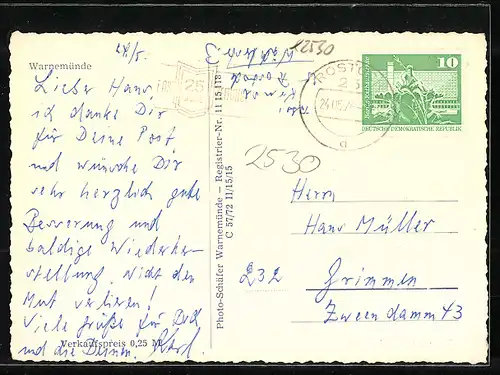 Warnemünde
24/5.
Lieber Hans,
ich danke Dir
für Deine Post
und wünsche Dir
sehr herzlich gute
Besserung und
baldige Wiederher-
stellung. Nicht den
Mut verlieren!
Viele Grüße für Dich
und die Deinen.
Verkaufspreis 0,25 M
Photo-Schäfer Warnemünde — Registrier-Nr. 11 15 118
C 57/72 II/15/15
2530
ROSTOCK
25
10
DEUTSCHE DEMOKRATISCHE REPUBLIK
2530
Herrn
Hans Müller
232 Grimmen
Zweendamm 43